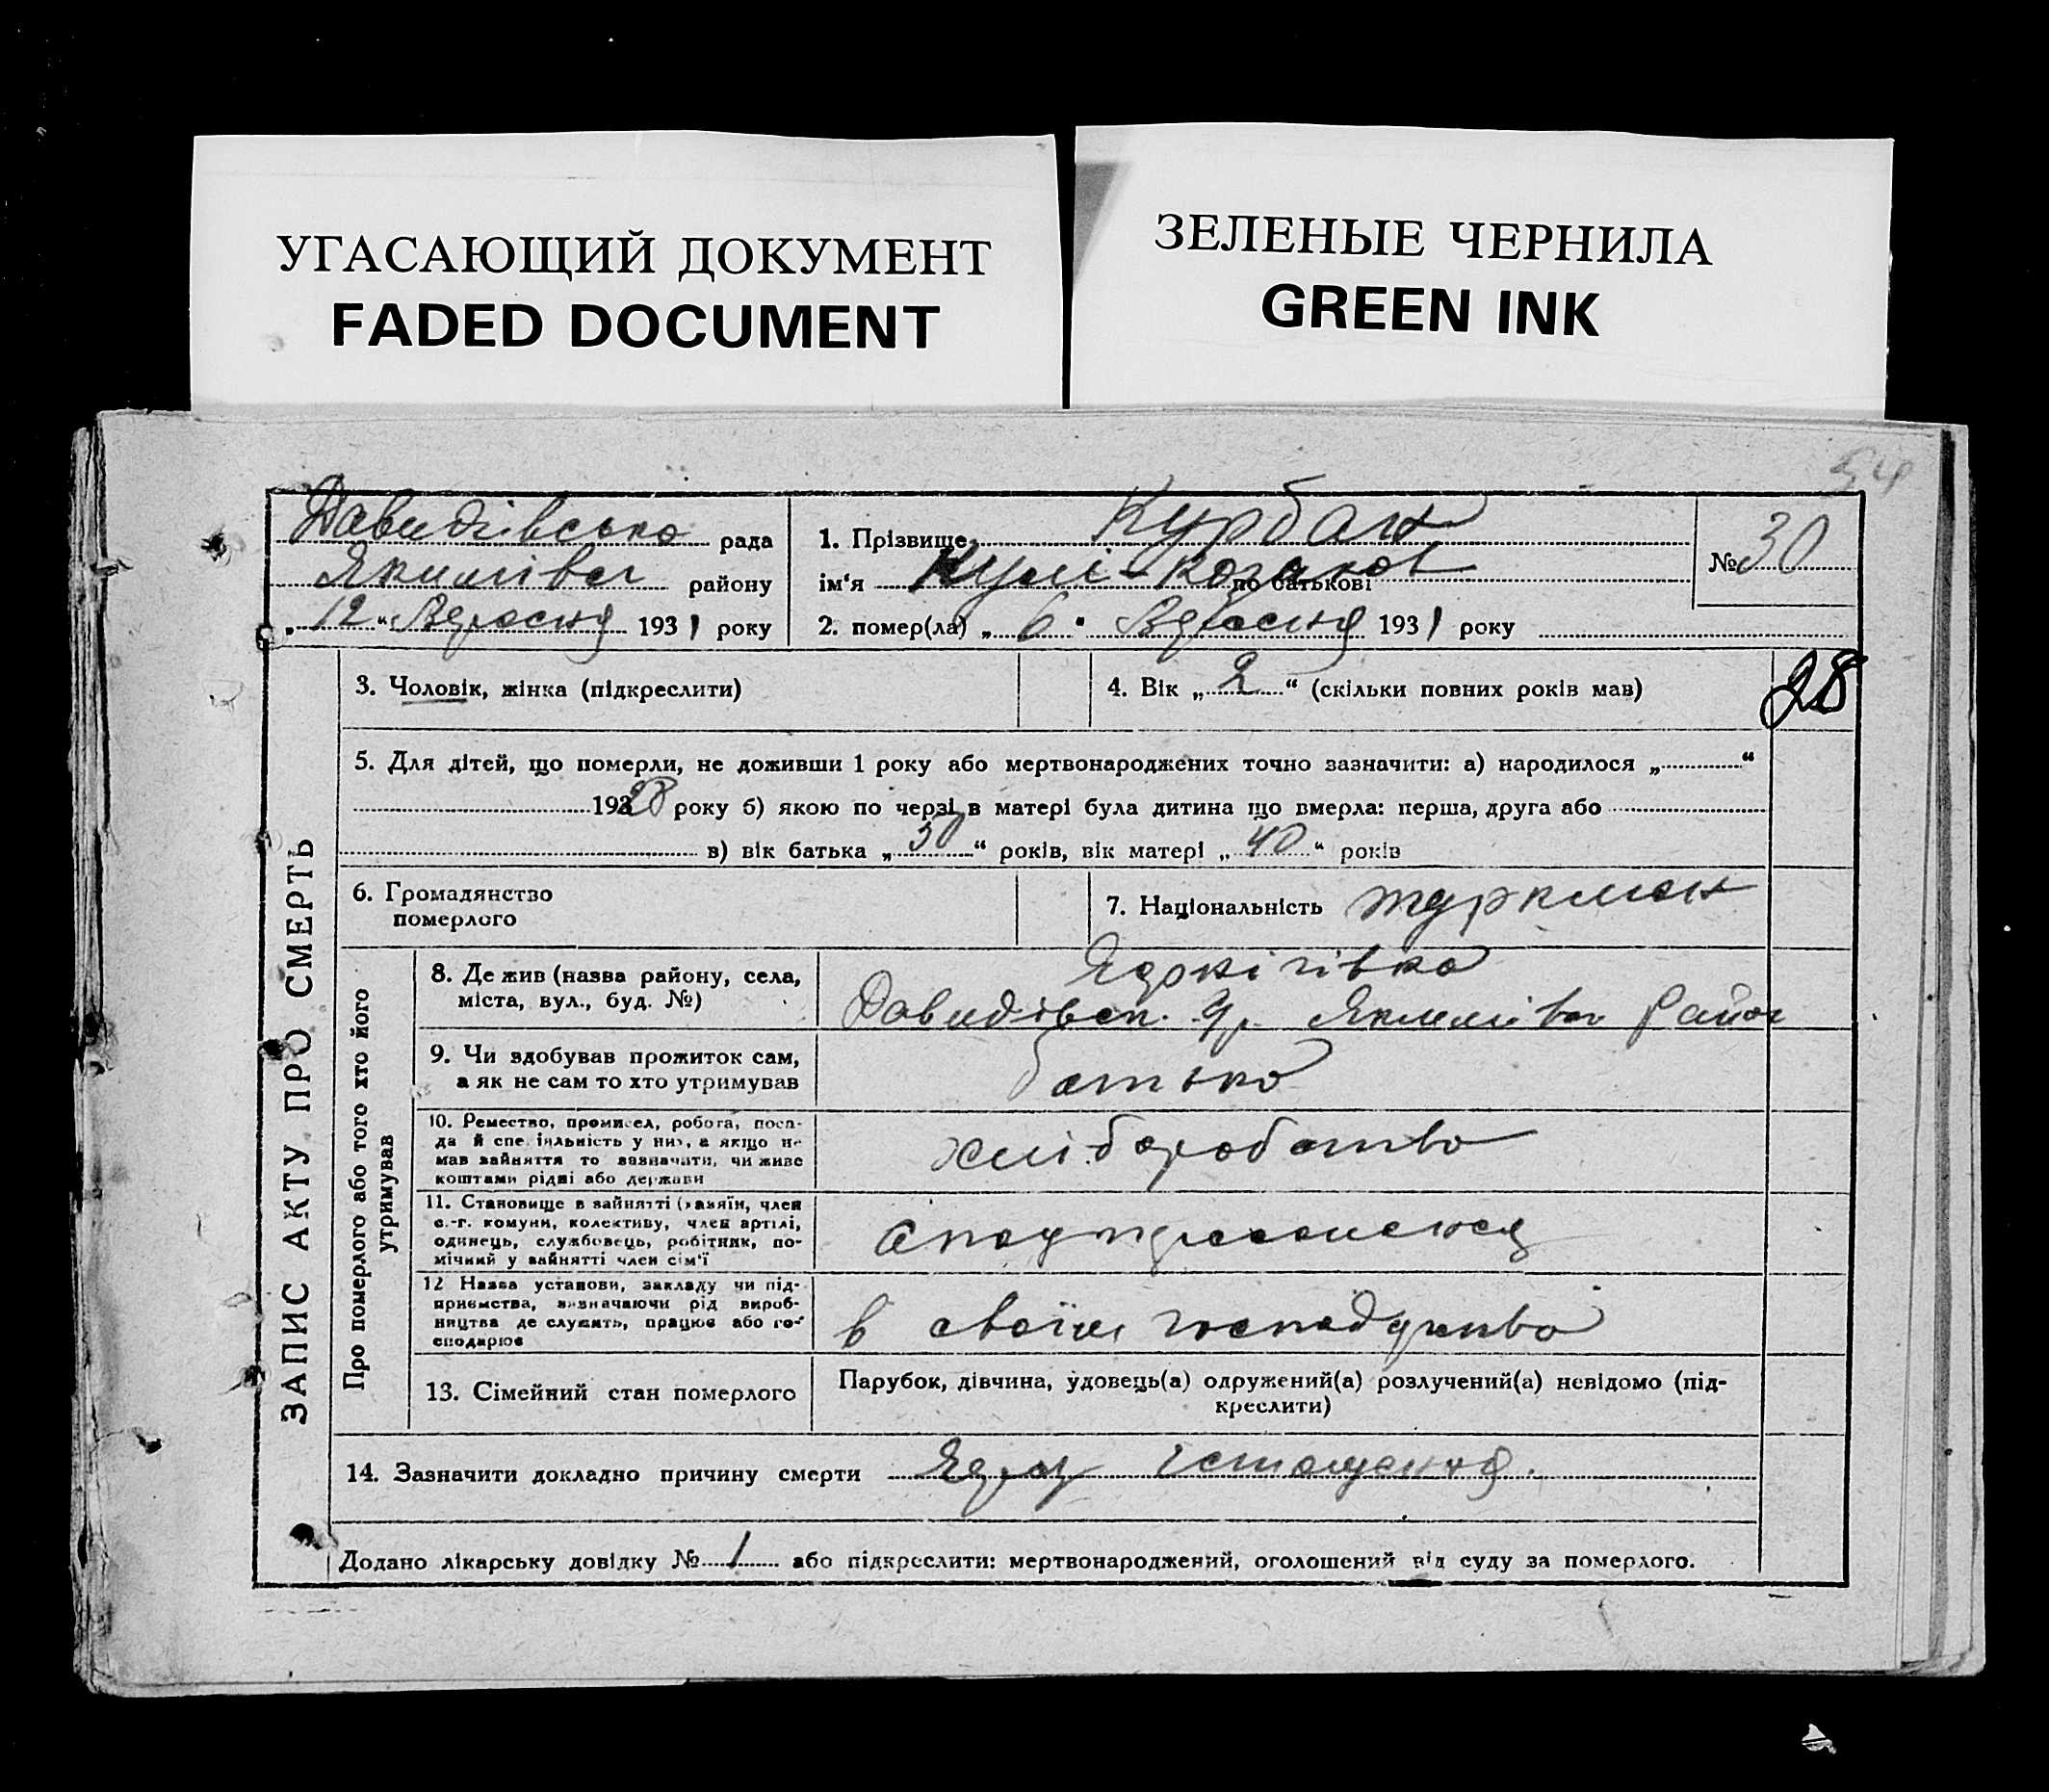 УГАСАЮЩИЙ ДОКУМЕНТ
FADED DOCUMENT
ЗЕЛЕНЫЕ ЧЕРНИЛА
GREEN INK
54
Давидівська рада
Якимівськ району
„ 12 “ Вересня 1931 року
1. Прізвище Курбан
ім‘я Кулі- по батькові
2. помер(ла) „ 6 " Вересня 1931 року
№ 30
ЗАПИС АКТУ ПРО СМЕРТЬ
3. Чоловік, жінка (підкреслити)
4. Вік „ 2 “ (скільки повних років мав)
28
5. Для дітей, що померли, не доживши 1 року або мертвонароджених точно зазначити: а) народилося „ “
1928 року б) якою по черзі в матері була дитина що вмерла: перша, друга або
в) вік батька „ 50 “ років, вік матері „ 40 “ років
6. Громадянство
померлого
7. Національність туркмен
Про померлого або того хто його
утримував
8. Де жив (назва району, села,
міста, вул., буд. №)
Давидівськ. Якимівськ район
9. Чи здобував прожиток сам,
а як не сам то хто утримував
батько
10. Ремество, промисел, робота, поса-
да й спеціяльність у них, а якщо не
мав зайняття то зазначити, чи живе
коштами рідні або держави
хліборобство
11. Становище в зайнятті (хазяїн, член
с.-г. комуни, колективу, член артілі,
одинець, службовець, робітник, по-
мічний у зайнятті член сім‘ї
12 Назва установи, закладу чи під-
приємства, зазначаючи рід вироб-
ництва де служить, працює або го-
сподарює
в своїм господарстві
13. Сімейний стан померлого
Парубок, дівчина, удовець(а) одружений(а) розлучений(а) невідомо (під-
креслити)
14. Зазначити докладно причину смерти
Додано лікарську довідку № 1 або підкреслити: мертвонароджений, оголошений від суду за померлого.